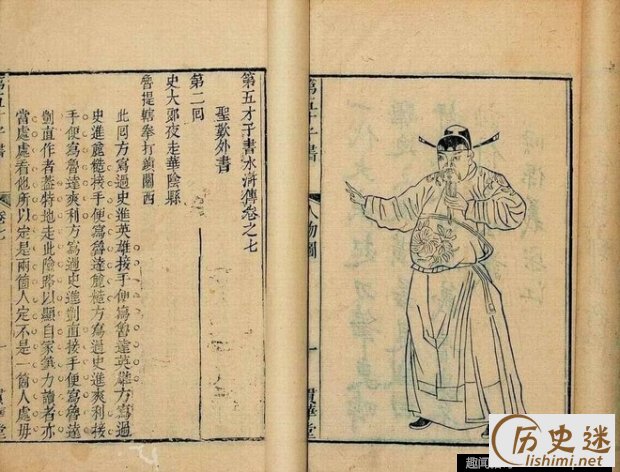 第五才子書
人物圖
一
貫華堂
第五才子書水滸傳卷之七
聖歎外書
第二回
史大郎夜走華陰縣
魯提轄拳打鎮關西
此回方寫過史進英雄接手便寫魯達英雄方寫過
史進麤糙接手便寫魯達麤糙方寫過史進爽利接
手便寫魯達爽利方寫過史進剴直接手便寫魯達
剴直作者蓋特地走此險路以顯自家筆力讀者亦
當處處看他所以定是兩箇人定不是一箇人處毋
第五才子書
卷七
一
貫華堂
历史迷
lishimi.net
趣闻